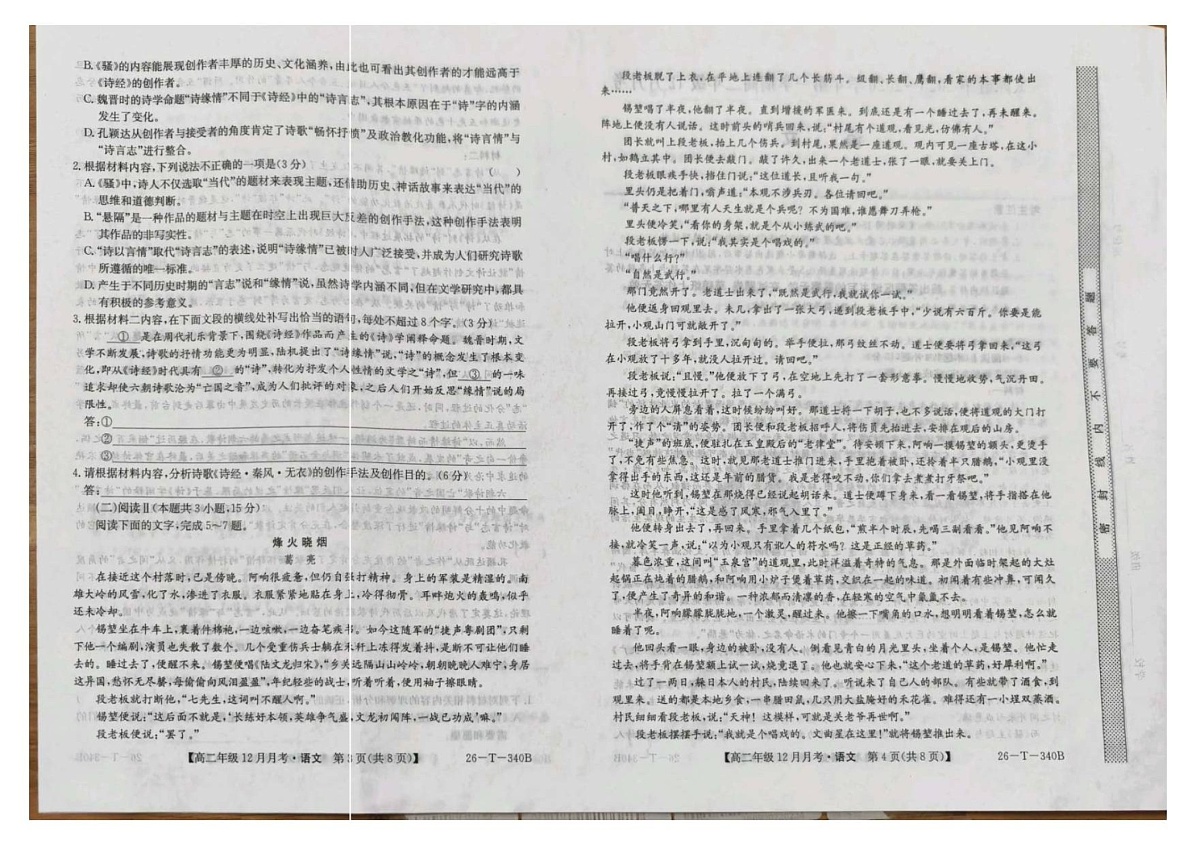 B.《骚》的内容能展现创作者丰厚的历史、文化涵养,由此也可看出其创作者的才能远高于
《诗经》的创作者。
C.魏晋时的诗学命题“诗缘情”不同于《诗经》中的“诗言志”,其根本原因在于“诗”字的内涵
发生了变化。
D.孔颖达从创作者与接受者的角度肯定了诗歌“畅怀抒愤”及政治教化功能,将“诗言情”与
“诗言志”进行整合。
2.根据材料内容,下列说法不正确的一项是(3分) ( )
A.《骚》中,诗人不仅选取“当代”的题材来表现主题,还借助历史、神话故事来表达“当代”的
思维和道德判断。
B.“悬隔”是一种作品的题材与主题在时空上出现巨大反差的创作手法,这种创作手法表明
其作品的非写实性。
C.“诗以言情”取代“诗言志”的表述,说明“诗缘情”已被时人广泛接受,并成为人们研究诗歌
所遵循的唯一标准。
D.产生于不同历史时期的“言志”说和“缘情”说,虽然诗学内涵不同,但在文学研究中,都具
有积极的参考意义。
3.根据材料二内容,在下面文段的横线处补写出恰当的语句,每处不超过8个字。(3分)
①是在周代礼乐背景下,围绕《诗经》作品而产生的《诗》学阐释命题。魏晋时期,文
学不断发展,诗歌的抒情功能更为明显,陆机提出了“诗缘情”说,“诗”的概念发生了根本变
化,即从《诗经》时代具有②的“诗”,转化为抒发个人性情的文学之“诗”,但③的一味
追求却使六朝诗歌沦为“亡国之音”,成为人们批评的对象,之后人们开始反思“缘情”说的局
限性。
答:①
②
③
4.请根据材料内容,分析诗歌《诗经·秦风·无衣》的创作手法及创作目的。(6分)
答:
(二)阅读Ⅱ(本题共3小题,15分)
阅读下面的文字,完成5~7题。
烽火晓烟
葛亮
在接近这个村落时,已是傍晚。阿响很疲惫,但仍自强打精神。身上的军装是精湿的。南
雄大岭的风雪,化了水,渗进了衣服。衣服紧紧地贴在身上,冷得彻骨。耳畔炮火的轰鸣,似乎
还未冷却。
锡堃坐在牛车上,裹着件棉袍,一边咳嗽,一边奋笔疾书。如今这随军的“捷声粤剧团”,只剩
下他一个编剧,演员也失散了数个。几个受重伤兵士躺在禾秆上冻得发着抖,是断不可让他们睡
去的。睡过去了,便醒不来。锡堃便唱《陆文龙归宋》,“乡关远隔山山岭岭,朝朝晚晚人难宁,身居
这异国,愁怀无尽萦,每偷偷向风泪盈盈”,年纪轻些的战士,听着听着,便用袖子擦眼睛。
段老板就打断他,“七先生,这词叫不醒人啊。”
锡堃便说:“这后面不就是,‘长练好本领,英雄争气盛,文龙初闻阵,一战已功成’嘛。”
段老板便说:“罢了。”
【高二年级12月月考·语文 第3页(共8页)】 26-T-340B
段老板脱了上衣,在平地上连翻了几个长筋斗。缎翻、长翻、鹰翻,看家的本事都使出
来……
锡堃唱了半夜,他翻了半夜。直到增援的军医来。到底还是有一个睡过去了,再未醒来。
阵地上便没有人说话。这时前头的哨兵回来,说:“村尾有个道观,看见光,仿佛有人。”
团长就叫上段老板,抬上几个伤兵。到村尾,果然是一座道观。观内可见一座古塔,在这小
村,如鹤立其中。团长便去敲门。敲了许久,出来一个老道士,张了一眼,就要关上门。
段老板眼疾手快,挡住门说:“这位道长,且听我一句。”
里头仍是把着门,嗡声道:“本观不涉兵刃。各位请回吧。”
“普天之下,哪里有人天生就是个兵呢?不为国难,谁愿舞刀弄枪。”
里头便冷笑,“看你的身架,就是个从小练武的吧。”
段老板愣一下,说:“我其实是个唱戏的。”
“唱什么行?”
“自然是武行。”
那门竟然开了。老道士出来了,“既然是武行,我就试你一试。”
他便返身回观里去。未几,拿出了一张大弓,递到段老板手中,“少说有六百斤。你要是能
拉开,小观山门可就敞开了。”
段老板将弓拿到手里,沉甸甸的。举手便拉,那弓纹丝不动。道士便要将弓拿回来,“这弓
在小观放了十多年,就没人拉开过。请回吧。”
段老板说:“且慢。”他便放下了弓,在空地上先打了一套形意拳。慢慢地收势,气沉丹田。
再接过弓,竟慢慢拉开了。拉了一个满弓。
旁边的人屏息看着,这时候纷纷叫好。那道士将一下胡子,也不多说话,便将道观的大门打
开了,作了个“请”的姿势。团长便和段老板招呼人,将伤员先抬进去,安排在观后的山房。
“捷声”的班底,便驻扎在玉皇殿后的“老律堂”。待安顿下来,阿响一摸锡堃的额头,更烫手
了,不免有些焦急。这时,就见那老道士推门进来,手里抱着被卧,还拎着半只腊鹅,“小观里没
拿得出手的东西,这还是年前的腊货。我是老得咬不动啦,你们拿去煮煮打牙祭吧。”
这时他听到,锡堃在那烧得已经说起胡话来。道士便蹲下身来,看一看锡堃,将手指搭在他
脉上,阖目,睁开,“这是感了风寒,邪气入里了。”
他便转身出去了,再回来。手里拿着几个纸包,“煎半个时辰,先喝三副看看。”他见阿响不
接,就冷笑一声,说:“以为小观只有讹人的符水吗?这是正经的草药。”
暮色浓重,这间叫“玉泉宫”的道观里,此时洋溢着奇特的气息。那是外面临时架起的大灶
起锅正在炖着的腊鹅,和阿响用小炉子煲着草药,交织在一起的味道。初闻着有些冲鼻,可闻久
了,便产生了奇异的和谐。一种浓郁而清凛的香,在轻寒的空气中氤氲不去。
半夜,阿响朦朦胧胧地,一个激灵,醒过来。他揩一下嘴角的口水,想明明看着锡堃,怎么就
睡着了呢。
他回头去看一眼,身边的被卧,没有人。倒看见青白的月光里头,坐着个人,是锡堃。他忙走
过去,将手背在锡堃额上试一试,烧竟退了。他也就安心下来,“这个老道的草药,好犀利啊。”
过了一两日,躲日本人的村民,陆续回来了。听说来了自己人的部队。有些就带了酒食,到
观里来。送的都是本地乡食,一串腊田鼠,几只用大盐腌好的禾花雀。难得还有一小埕双蒸酒。
村民细细看段老板,说:“天神!这模样,可就是关老爷再世啊。”
段老板摆摆手说:“我就是个唱戏的。文曲星在这里!”就将锡堃推出来。
【高二年级12月月考·语文 第4页(共8页)】 26-T-340B
密封线内不要答题